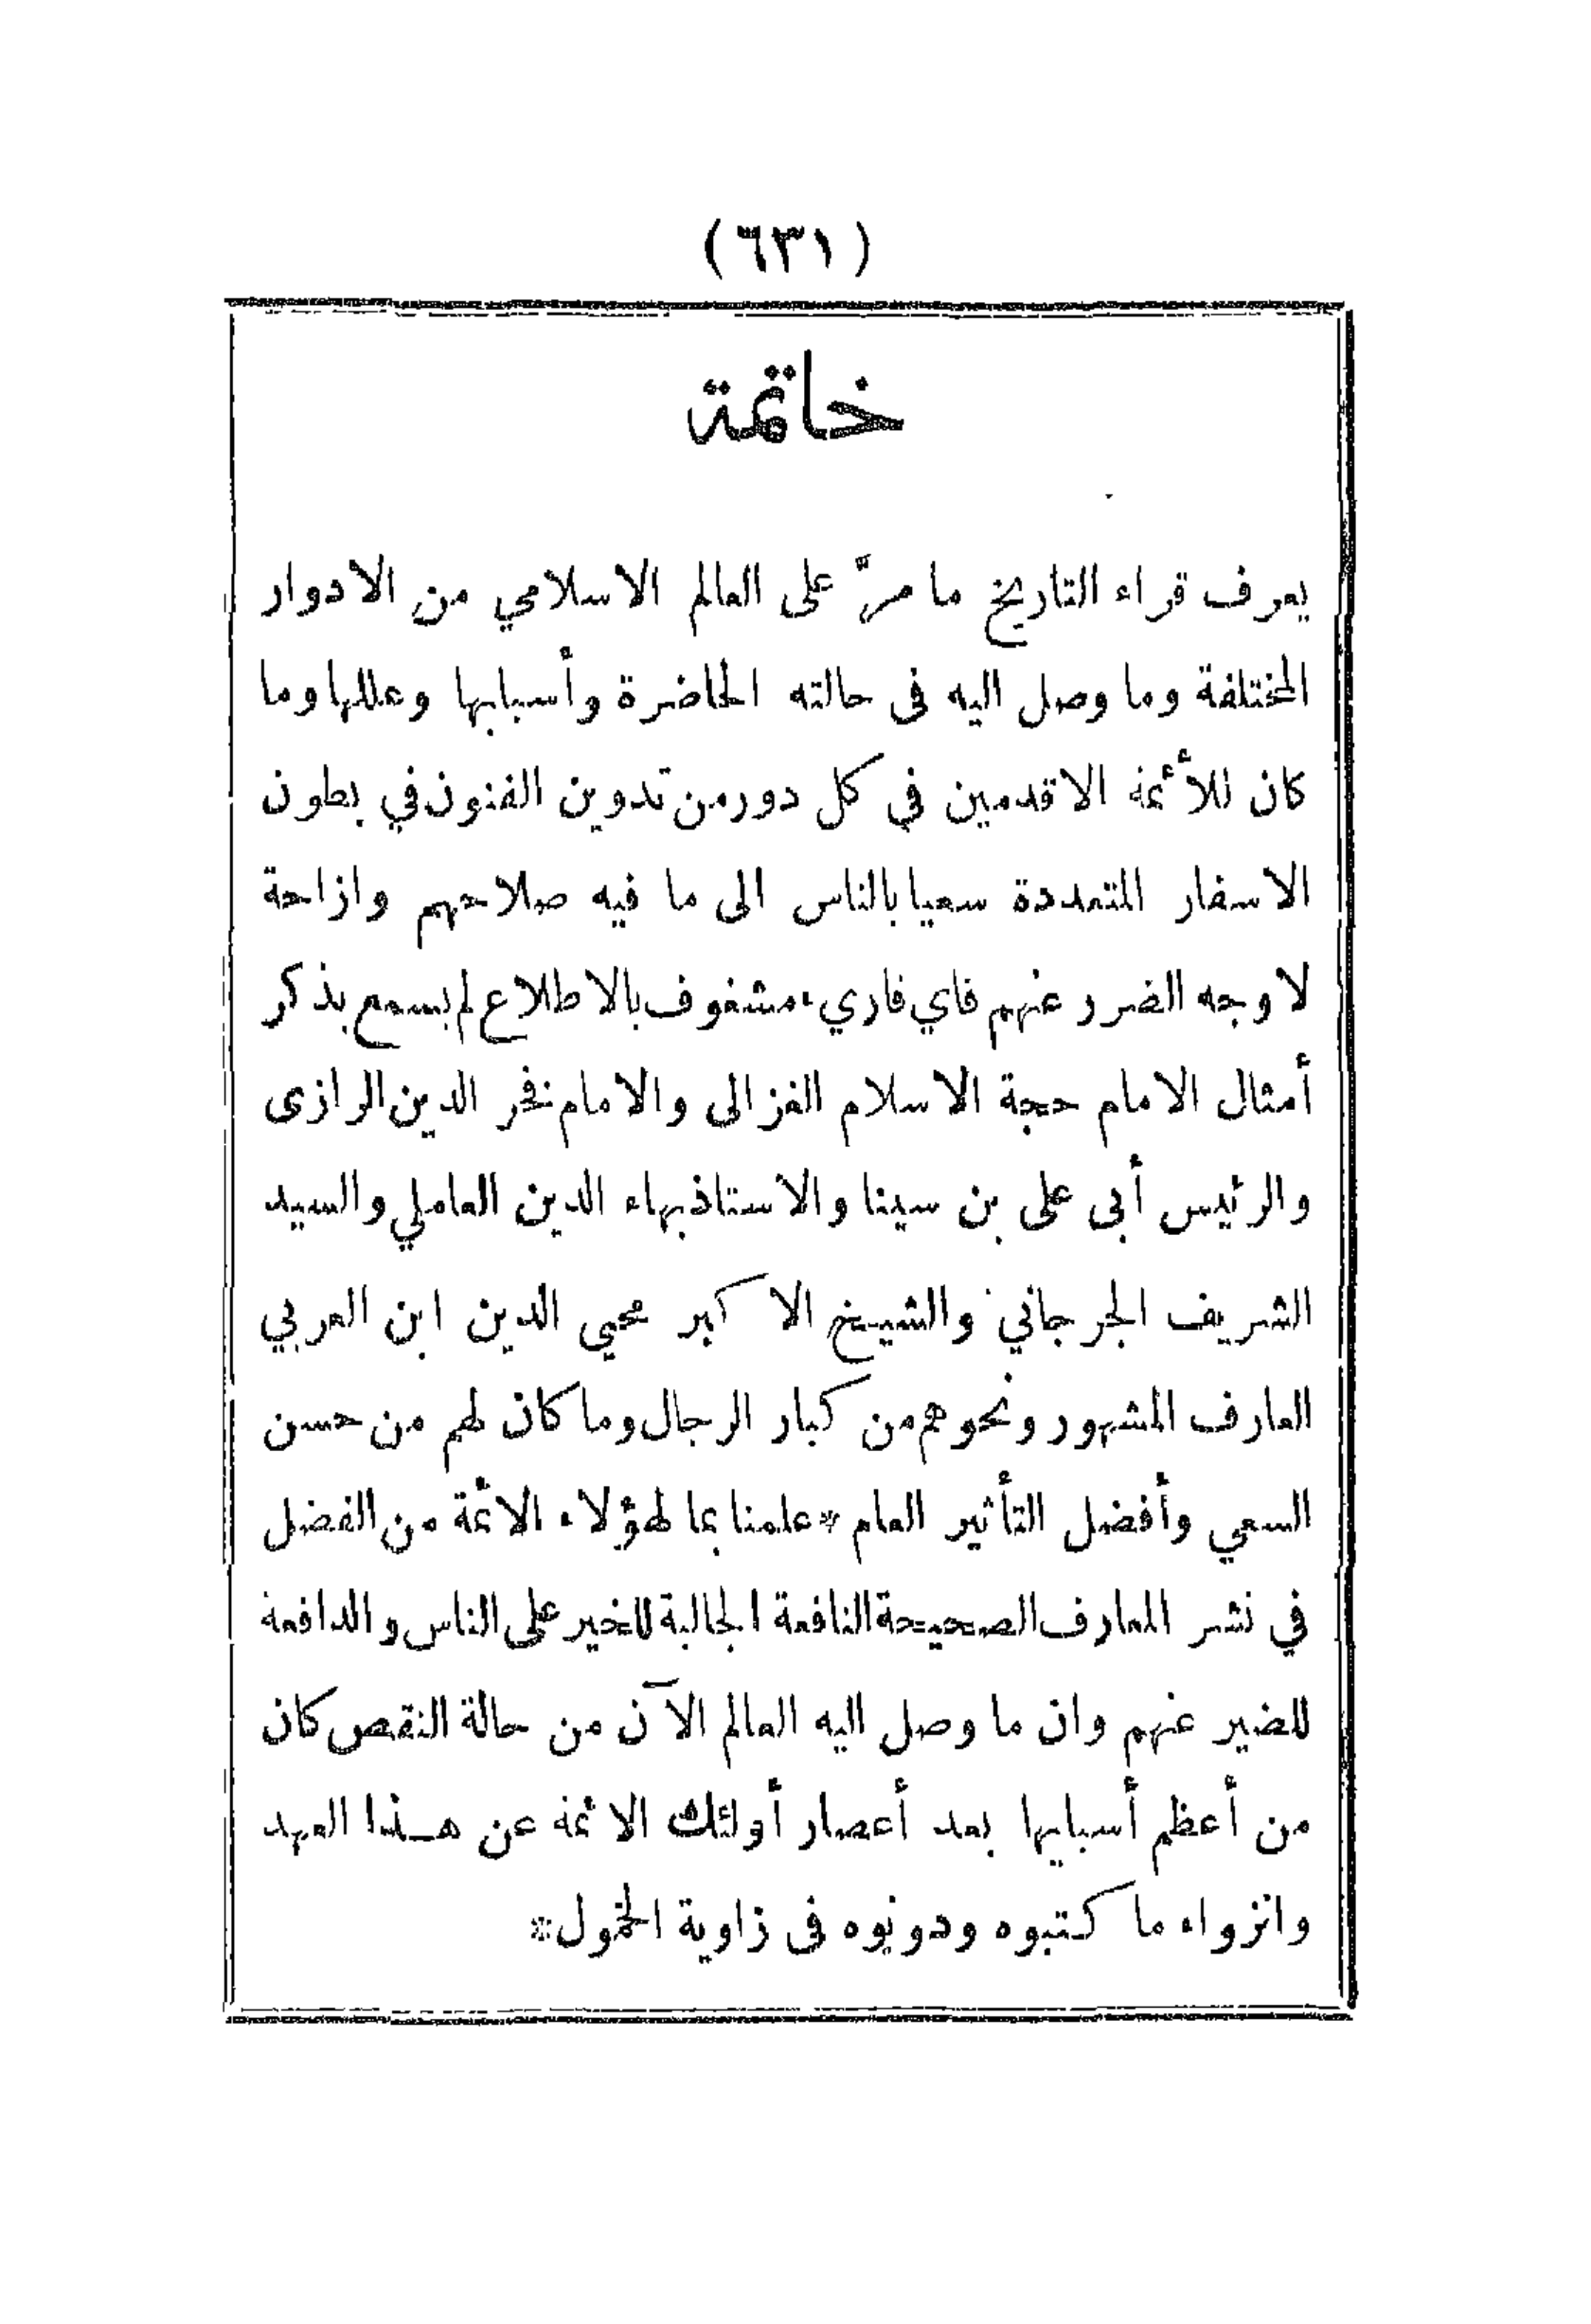 (٦٣١)
خاتمة
يعرف قراء التاريخ ما مرّ على العالم الاسلامي من الادوار
المختلفة وما وصل اليه فى حالته الحاضرة وأسبابها وعللها وما
كان للأئمة الاقدمين في كل دور من تدوين الفنون في بطون
الاسفار المتعددة سعيا بالناس الى ما فيه صلاحهم وازاحة
لاوجه الضرر عنهم فاي قاريء مشغوف بالاطلاع لم يسمع بذكر
أمثال الامام حجة الاسلام الغزالى والامام فخر الدين الرازى
والرئيس أبى على بن سينا والاستاذ بهاء الدين العاملي والسيد
الشريف الجرجاني والشيخ الاكبر محيي الدين ابن العربي
العارف المشهور ونحوهم من كبار الرجال وما كان لهم من حسن
السعي وأفضل التأثير العام * علمنا بما لهؤلاء الائمة من الفضل
في نشر المعارف الصحيحة النافعة الجالبة للخير على الناس والدافعة
للضير عنهم وان ما وصل اليه العالم الآن من حالة النقص كان
من أعظم أسبابها بعد أعصار أولئك الائمة عن هـذا العهد
وانزواء ما كتبوه ودونوه فى زاوية الخمول *